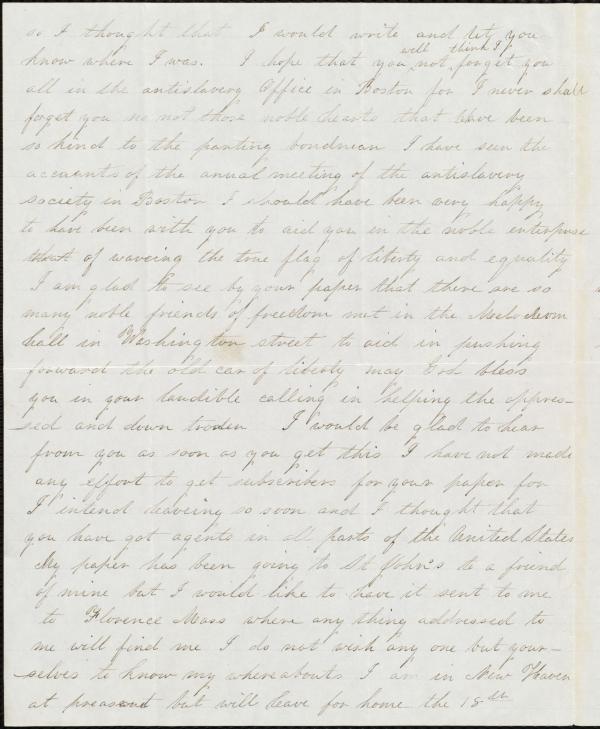 so I thought that I would write and let you
know where I was. I hope that you will not think I forget you
all in the antislavery Office in Boston for I never shall
forget you no not those noble hearts that have been
so kind to the panting bondman I have seen the
accounts of the anual meeting of the antislavery
society in Boston I should have been very happy
to have been with you to aid you in the noble enterprise
that of waveing the true flag of liberty and equality
I am glad to see by your paper that there are so
many noble friends of freedom met in the
hall in Washington street to aid in pushing
forward the old car of liberty may God bless
you in your laudible calling in helping the oppres-
sed and down troden I would be glad to hear
from you as soon as you get this I have not made
any effort to get subscribers for your paper for
I intend leaveing so soon and I thought that
you have got agents in all parts of the United States
My paper has been going to St John's to a friend
of mine but I would like to have it sent to me
to Florence Mass where any thing addressed to
me will find me I do not wish any one but your-
selves to know my whereabouts I am in New Haven
at preasent but will leave for home the 18th